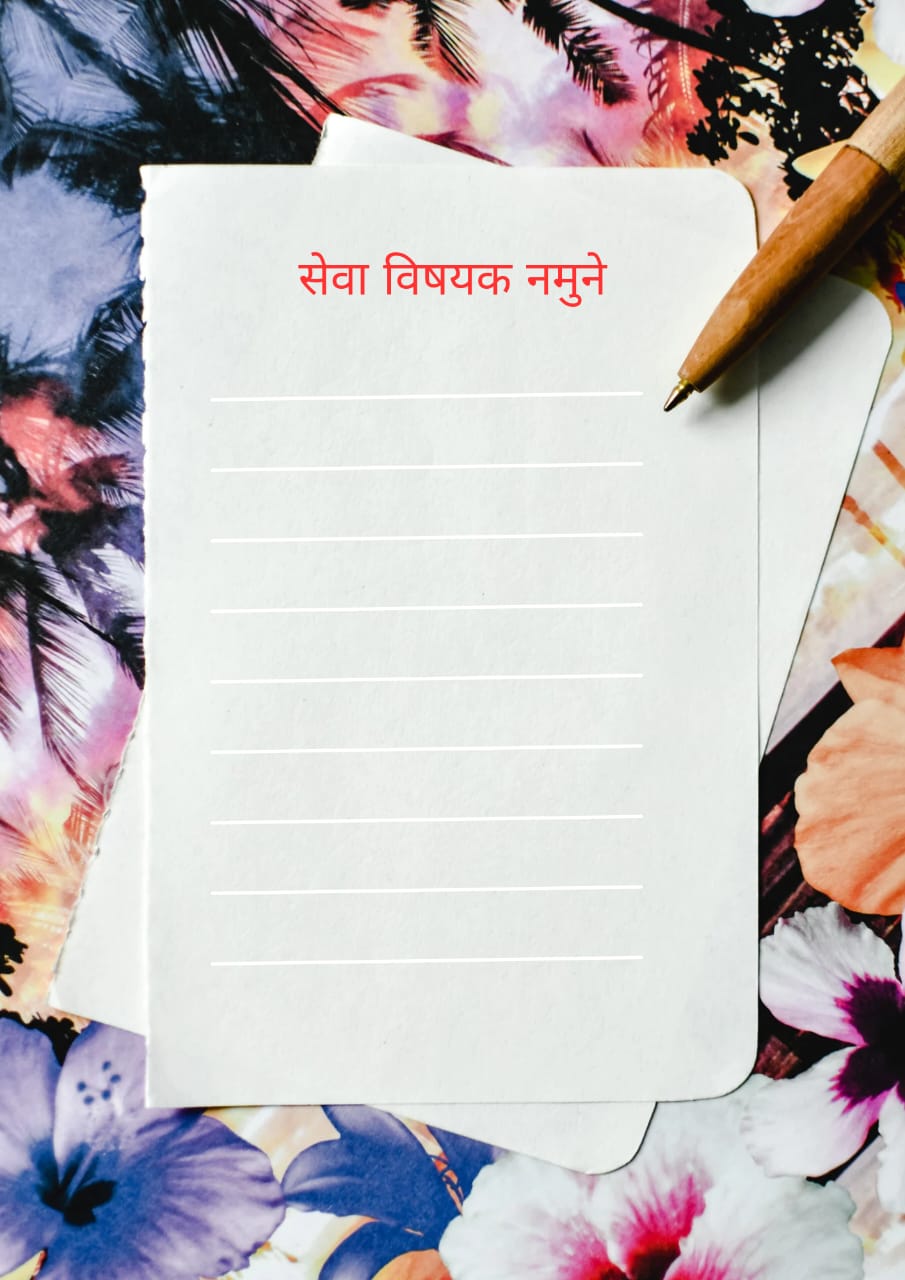 सेवा विषयक नमुने